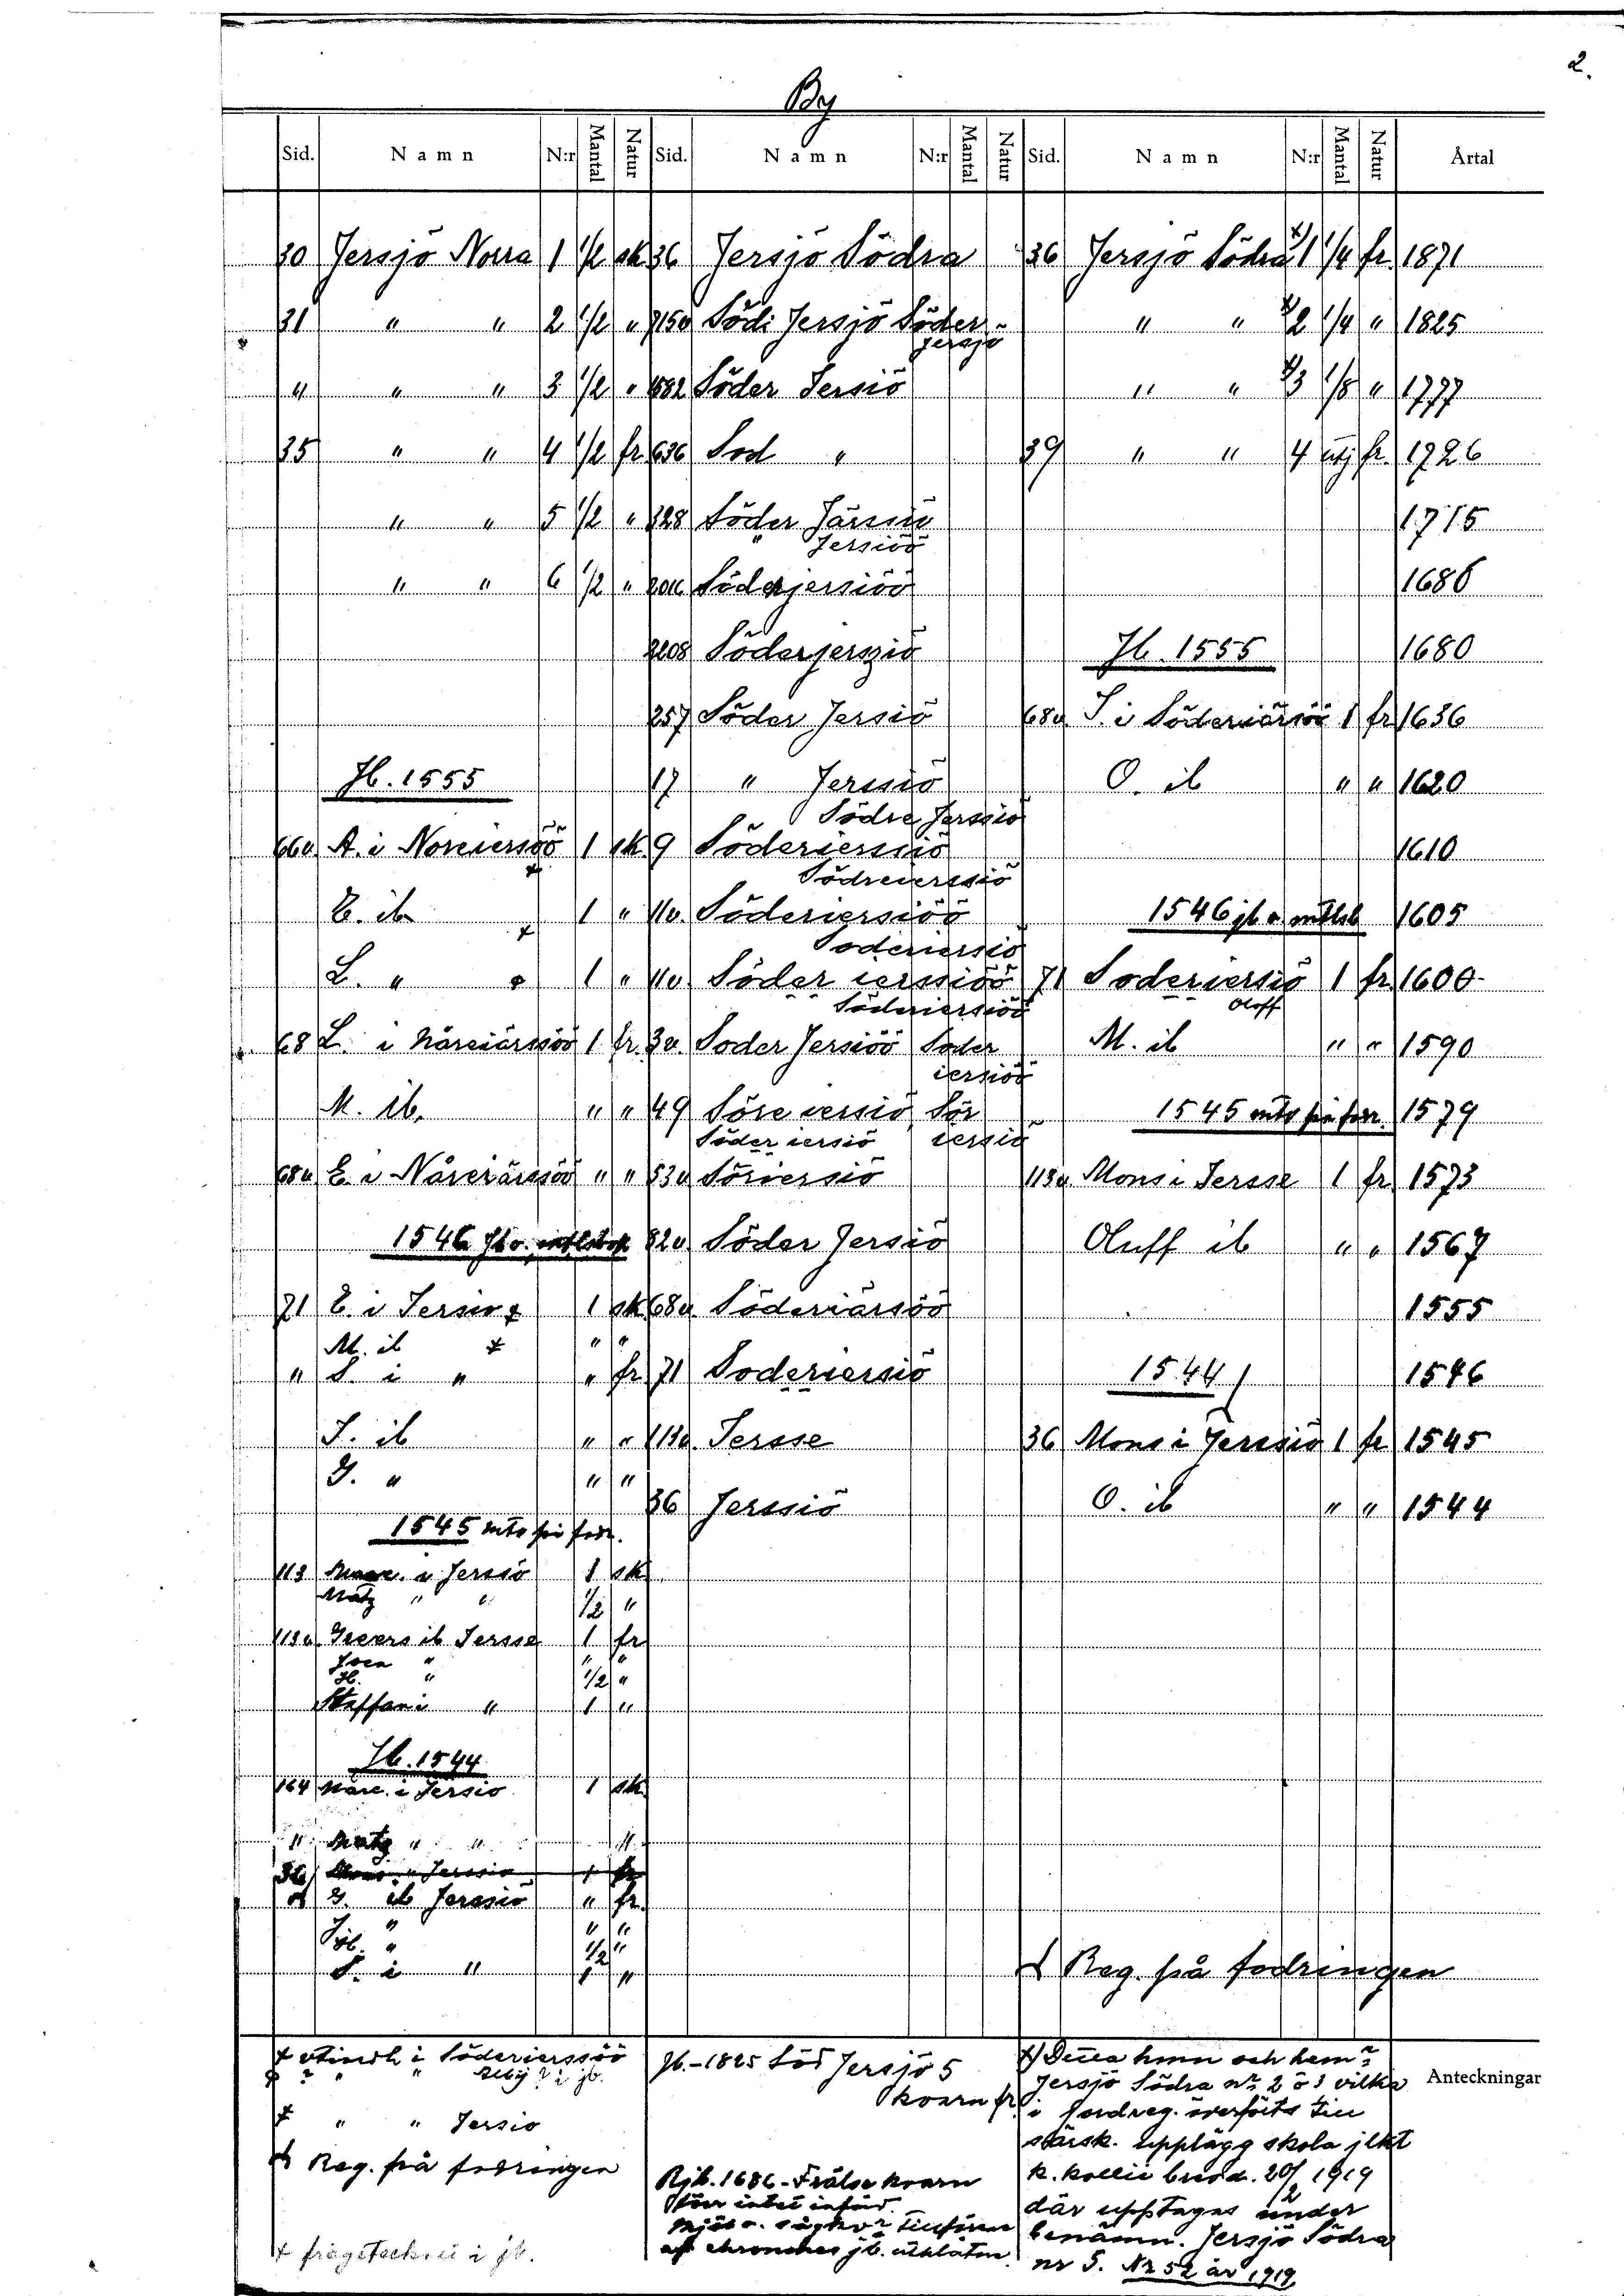 2.
By
Sid. Namn N:r Mantal Natur Sid. Namn N:r Mantal Natur Sid. Namn N:r Mantal Natur Årtal
30 Jersjö Norra 1 1/2 sk 36 Jersjö Södra 36 Jersjö Södra x) 1 1/4 fr. 1871
31 " " 2 1/2 " 7150 Södi Jersjö Söder- " " x) 2 1/4 " 1825
jersjö
" " " 3 1/2 " 1582 Söder Jersiö " " x) 3 1/8 " 1777
35 " " 4 1/2 fr 636 Sod " 39 " " 4 utj fr. 1726
" " 5 1/2 " 328 Söder Järssiö 1715
" Jersiöö
" " 6 1/2 " 2016 Söderjersiöö 1686
2208 Söderjerssiö Jb. 1555 1680
257 Söder Jersiö 68v J. i Söderiärsöö 1 fr 1636
Jb. 1555 17 " Jerssiö O. ib " " 1620
Södre Jerssiö
66v A. i Noreiersöö 1 sk. 9 Söderierssiö 1610
Södreierssiö
E. ib 1 " 11v. Söderiersiöö 1546 jb o. mtlsb 1605
Soderiersiö
L. " 1 " 11v. Söder ierssiöö 71 Soderiersiö 1 fr. 1600
Söderiersiöö Oloff
68 L. i Nåreiärssöö 1 fr. 3v. Soder Jersiöö Soder M. ib " " 1590
iersiöö
M. ib. " " 49 Söre iersiö Sör 1545 mts på fodr. 1579
Söder iersiö iersiö
68v E. i Nåreiärssöö " " 53v Söriersiö 113v Mons i Jersse 1 fr. 1573
1546 jb o. mtlsbok 82v Söder Jersiö Oluff ib " " 1567
71 E. i Jersiö 1 sk 68v Söderiärsöö 1555
M. ib " "
" S. i " " fr 71 Soderiersiö 1544 1546
J. ib " " 113v. Jersse 36 Mons i Jerssiö 1 fr 1545
G. " " "
36 Jerssiö O. ib " " 1544
1545 mts på fodr.
113 i Jersiö 1 sk
Matz " " 1/2 "
113v. ib Jersse 1 fr
Joen " " "
H. " 1/2 "
Staffan i " 1 "
Jb. 1544
164 Marc. i Jersio 1 sk.
" Matz " " "
36 Mons " Jerssio 1 fr
G. ib Jerssiö " fr.
" " "
" 1/2 "
S. i " 1 "
Reg. på fodringen
Söderierssöö
i jb.
" " Jersio
Reg. på fodringen
x frågetecknet i jb.
Jb.-1825 Söd Jersjö 5
kvarn fr
Rjb. 1686 - Frälse kvarn
förr intet införd.
jb.
x) Dessa hmn och hemn
Jersjö Södra nr 2 o 3 vilka
i Jordreg. överförts till
särsk. upplägg skola jlkt
k. kollii brev d. 20/2 1919
där upptages under
benämn. Jersjö Södra
nr 5. Nr 52 år 1919
Anteckningar